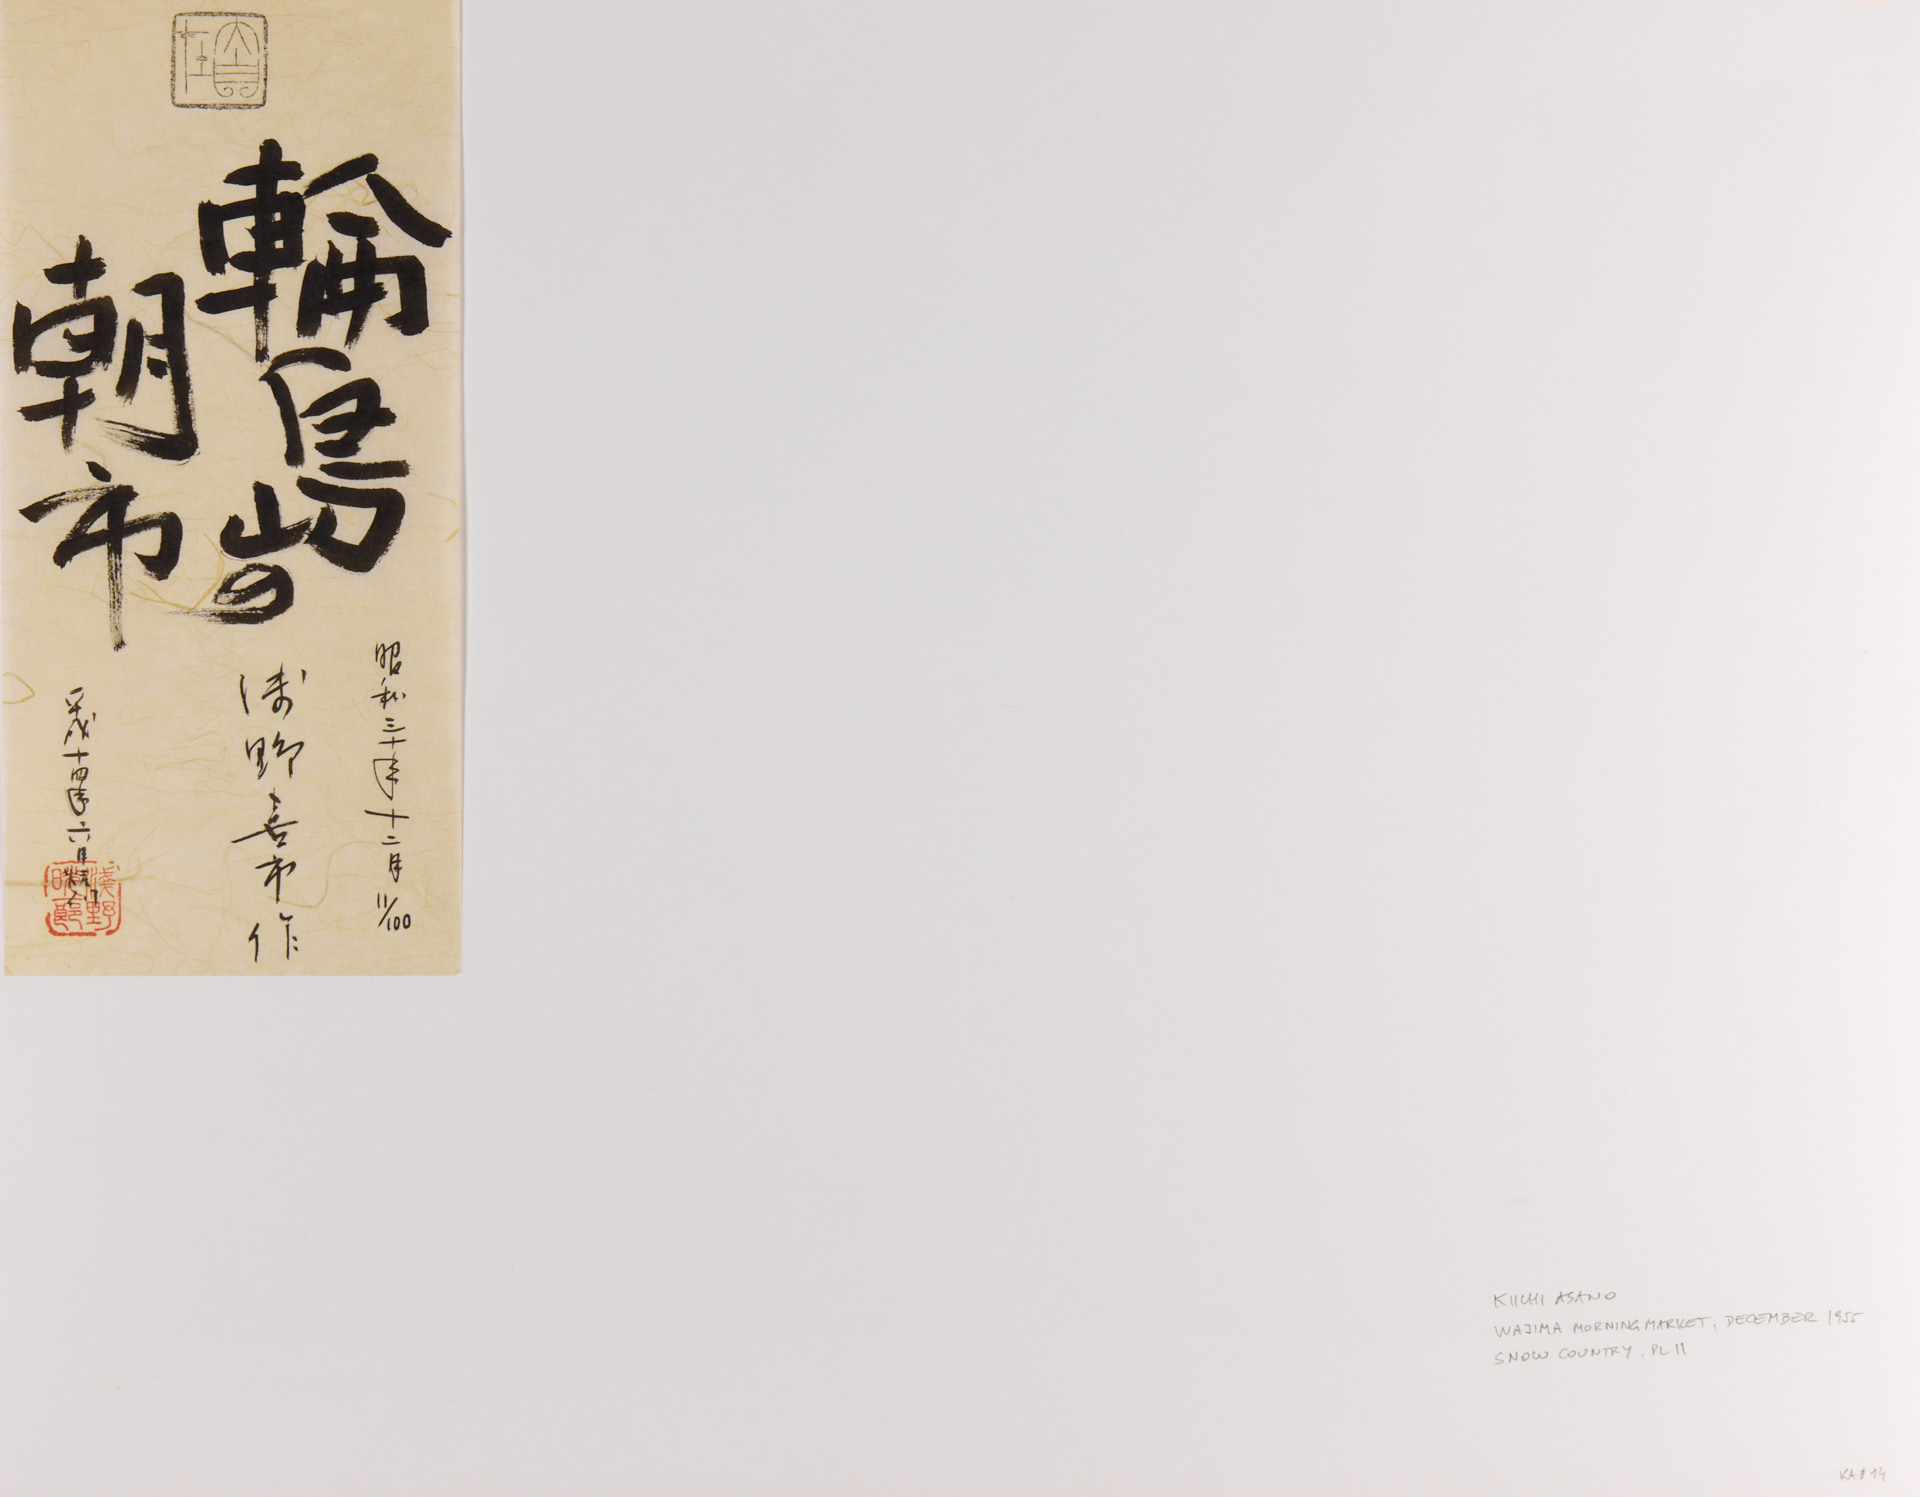 輪島の
朝市
昭和三十年十二月 11/100
浅野喜市作
平成十四年六月
浅野
KIICHI ASANO
WAJIMA MORNING MARKET, DECEMBER 1955
SNOW COUNTRY, PL 11
KA#14